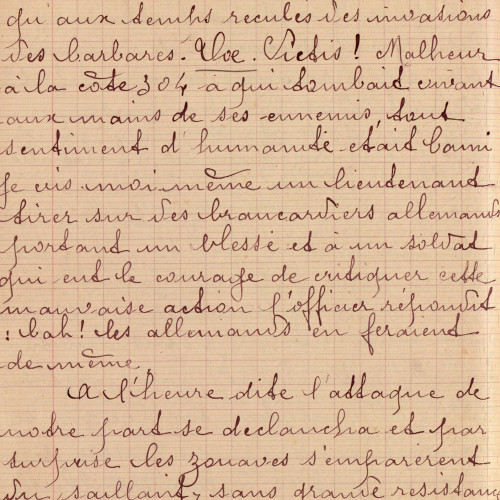 qu'aux temps reculés des invasions
des barbares. Voe. Victis ! Malheur
à la côte 304 à qui tombait vivant
aux mains de ses ennemis, tout
sentiment d'humanité était banni
Je vis moi même un lieutenant
tirer sur des brancardiers allemands
portant un blessé et à un soldat
qui eut le courage de critiquer cette
mauvaise action l'officier répondit
: bah ! les allemands en feraient
de même.
A l'heure dite l'attaque de
notre part se déclancha et par
surprise les zouaves s'emparèrent
du saillant, sans grande résistance